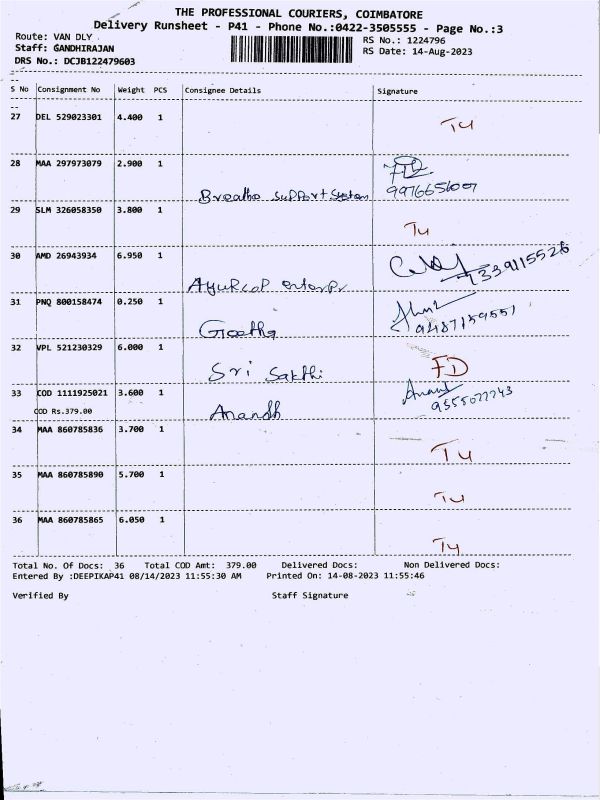 THE PROFESSIONAL COURIERS, COIMBATORE
Delivery Runsheet - P41 - Phone No.:0422-3505555 - Page No.:3
Route: VAN DLY .
RS No.: 1224796
Staff: GANDHIRAJAN
RS Date: 14-Aug-2023
DRS No.: DCJB122479603
S No Consignment No Weight PCS Consignee Details Signature
27 DEL 529023301 4.400 1 Tu
28 MAA 297973079 2.900 1 Breathe Support System
29 SLM 326058350 3.800 1 Tu
30 AMD 26943934 6.950 1 7339115526
31 PNQ 800158474 0.250 1 Geetha 9487159551
32 VPL 521230329 6.000 1 Sri Sakthi FD
33 COD 1111925021 3.600 1 Anandh Anand
COD Rs.379.00 9555077743
34 MAA 860785836 3.700 1 Tu
35 MAA 860785890 5.700 1 Tu
36 MAA 860785865 6.050 1 Tu
Total No. Of Docs: 36 Total COD Amt: 379.00 Delivered Docs: Non Delivered Docs:
Entered By :DEEPIKAP41 08/14/2023 11:55:30 AM Printed On: 14-08-2023 11:55:46
Verified By Staff Signature